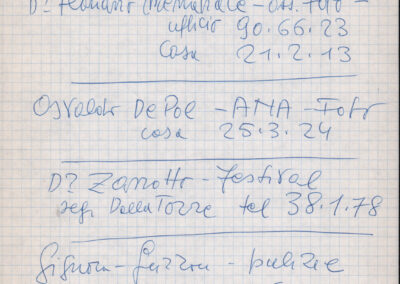 ufficio 90.66.23
casa 21.2.13
Osvaldo De Pol - AMA - Foto
casa 25.3.24
D? Zanotto - Festival
segr. Dalla Torre tel 38.1.78
pulizie